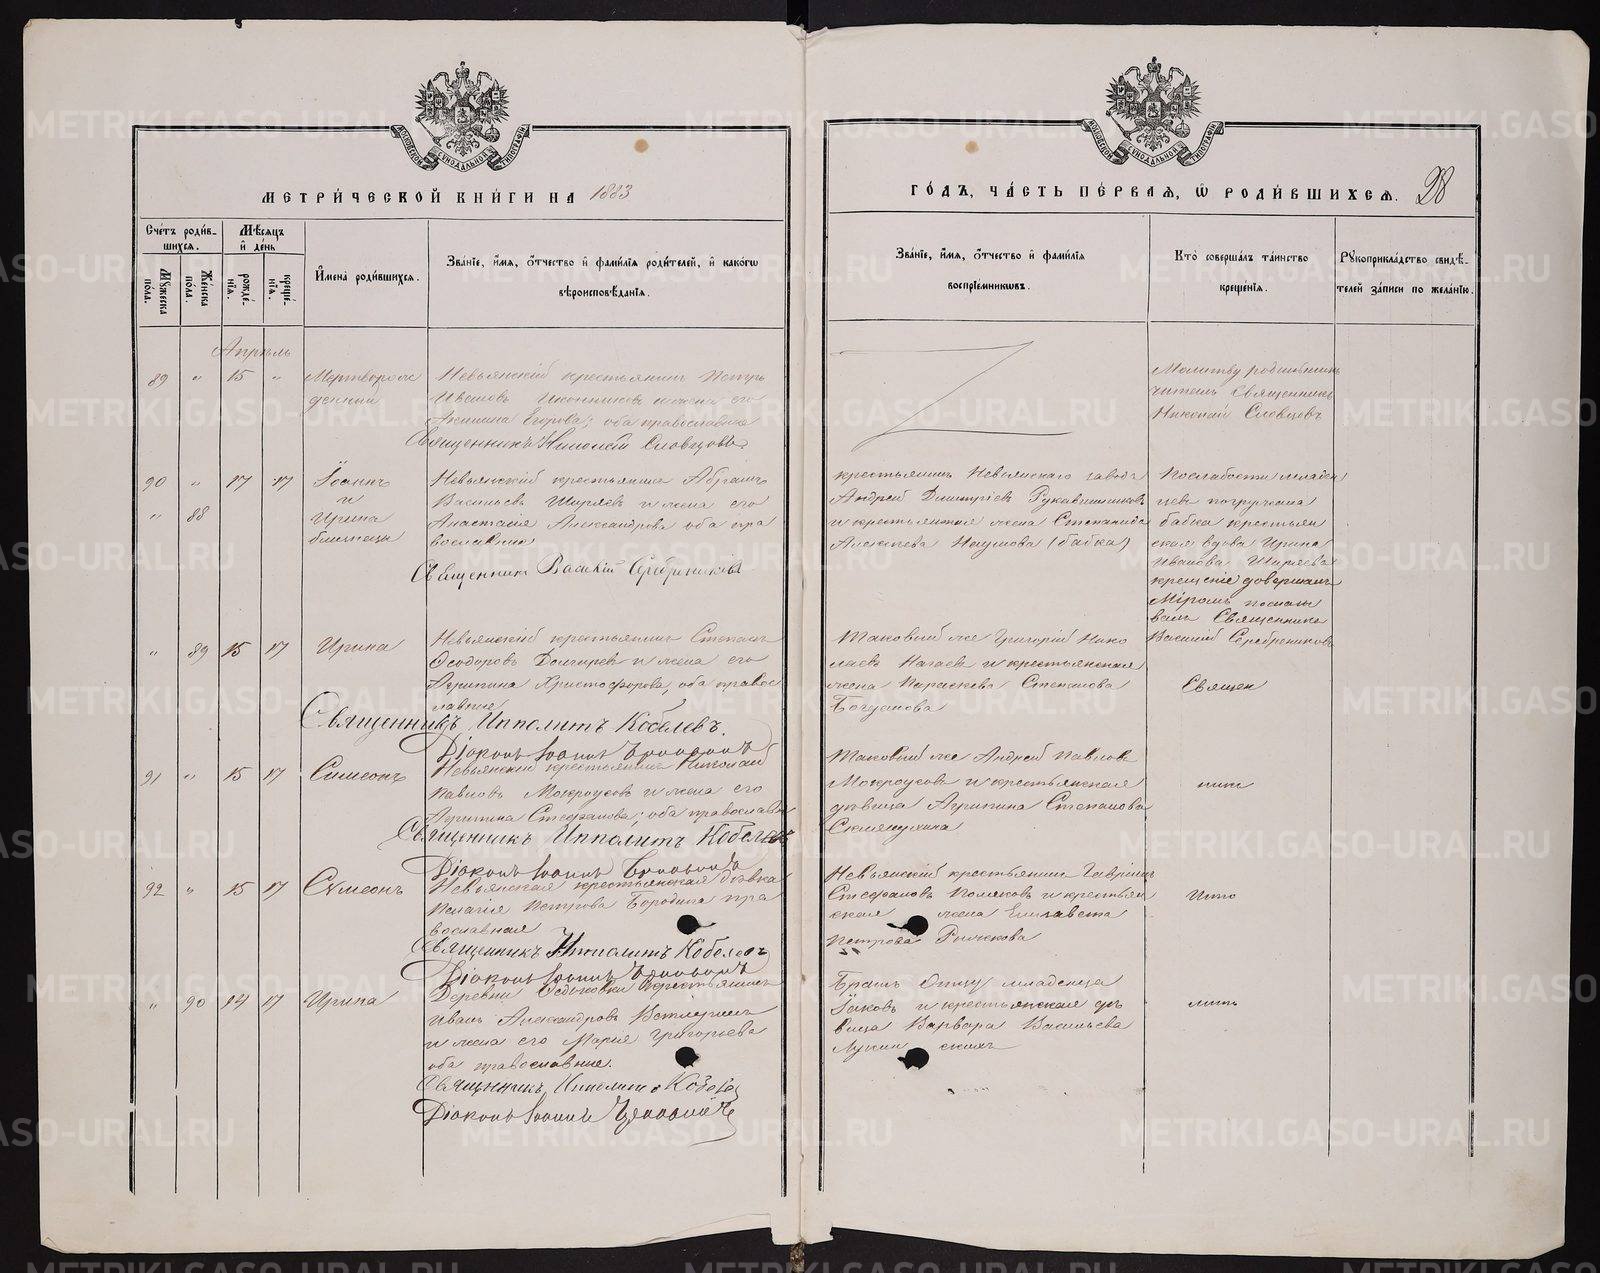 МЕТРИЧЕСКОЙ КНИГИ НА 1883
ГОДЪ, ЧАСТЬ ПЕРВАЯ, Ѡ РОДИВШИХСЯ. 28
Счетъ родившихся.
Мѣсяцъ и день
Мужеска пола.
Женска пола.
рожденія.
крещенія.
Имена родившихся.
Званіе, имя, отчество и фамилія родителей, и какогѡ
вѣроисповѣданія.
Званіе, имя, отчество и фамилія
воспріемниковъ.
Кто совершалъ таинство
крещенія.
Рукоприкладство свидѣтелей записи по желанію.
Апрѣль
89 " 15 "
Мертворож
денный
Невьянскій крестьянинъ Петръ
Ивановъ Иконниковъ и жена его
Егорова; оба православные
Священникъ Николай Словцовъ
Молитву родильницѣ
читалъ Священникъ
Николай Словцовъ
90 " 17 17
" 88
Іоаннъ
и
Ирина
близнецы
Невьянскій крестьянинъ Абрамъ
Васильевъ Ширяевъ и жена его
Анастасія Александрова оба пра
вославные
Священникъ Василій Серебренниковъ
крестьянинъ Невьянскаго завода
Андрей Дмитріевъ Рукавишниковъ
и крестьянская жена Степанида
Алексѣева Наумова (бабка)
По слабости младен
цевъ погружала
бабка крестьян
ская вдова Ирина
Иванова Ширяева
крещеніе довершалъ
Мѵромъ помазы
валъ Священникъ
Василій Серебренниковъ
" 89 15 17
Ирина
Невьянскій крестьянинъ Степанъ
Ѳеодоровъ и жена его
Агрипина Христофорова, оба правос
лавные
Священникъ Ипполитъ Кобелевъ.
Діаконъ Іоаннъ
Таковый же Григорій Нико
лаевъ Нагаевъ и крестьянская
жена Параскева Степанова
Богданова
Священ
91 " 15 17
Симеонъ
Невьянскій крестьянинъ Николай
Павловъ Мокроусовъ и жена его
Агрипина Стефанова; оба православные
Священникъ Ипполитъ Кобелевъ
Діаконъ Іоаннъ
Таковый же Андрей Павловъ
Мокроусовъ и крестьянская
дѣвица Агрипина Степанова
92 " 15 17
Сѵмеонъ
Невьянская крестьянская дѣвка
Пелагія Петрова Бородина пра
вославная
Священникъ Ипполитъ Кобелевъ
Діаконъ Іоаннъ
Невьянскій крестьянинъ Гавріилъ
Стефановъ Поляковъ и крестьян
ская жена Елизавета
Петрова Рычкова
" 90 14 17
Ирина
Деревни Ѳедьковки крестьянинъ
Иванъ Александровъ
и жена его Марія Григорьева
оба православные.
Священникъ Ипполитъ Кобелевъ
Діаконъ Іоаннъ
Братъ Отцу младенца
Іаковъ и крестьянская дѣ
вица Варвара Васильева
METRIKI.GASO-URAL.RU